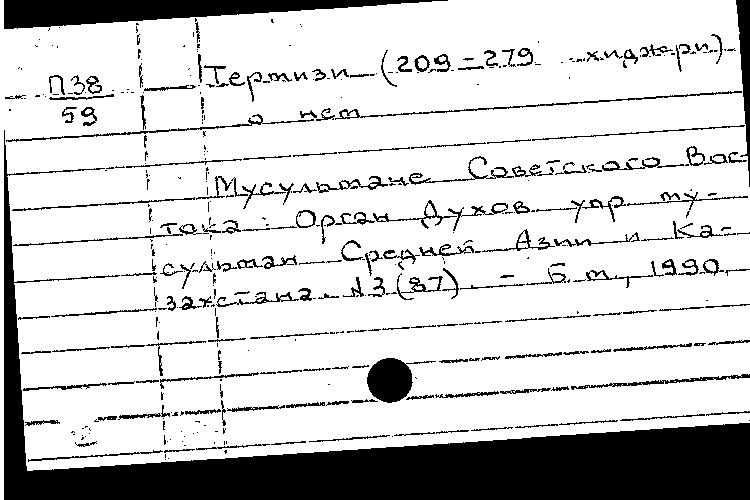 П38
59
Термизи (209-279 хиджери)
о нем
Мусульмане Советского Вос-
тока: Орган Духов. упр му-
сульман Средней Азии и Ка-
захстана. N3(87). - Б.м., 1990.